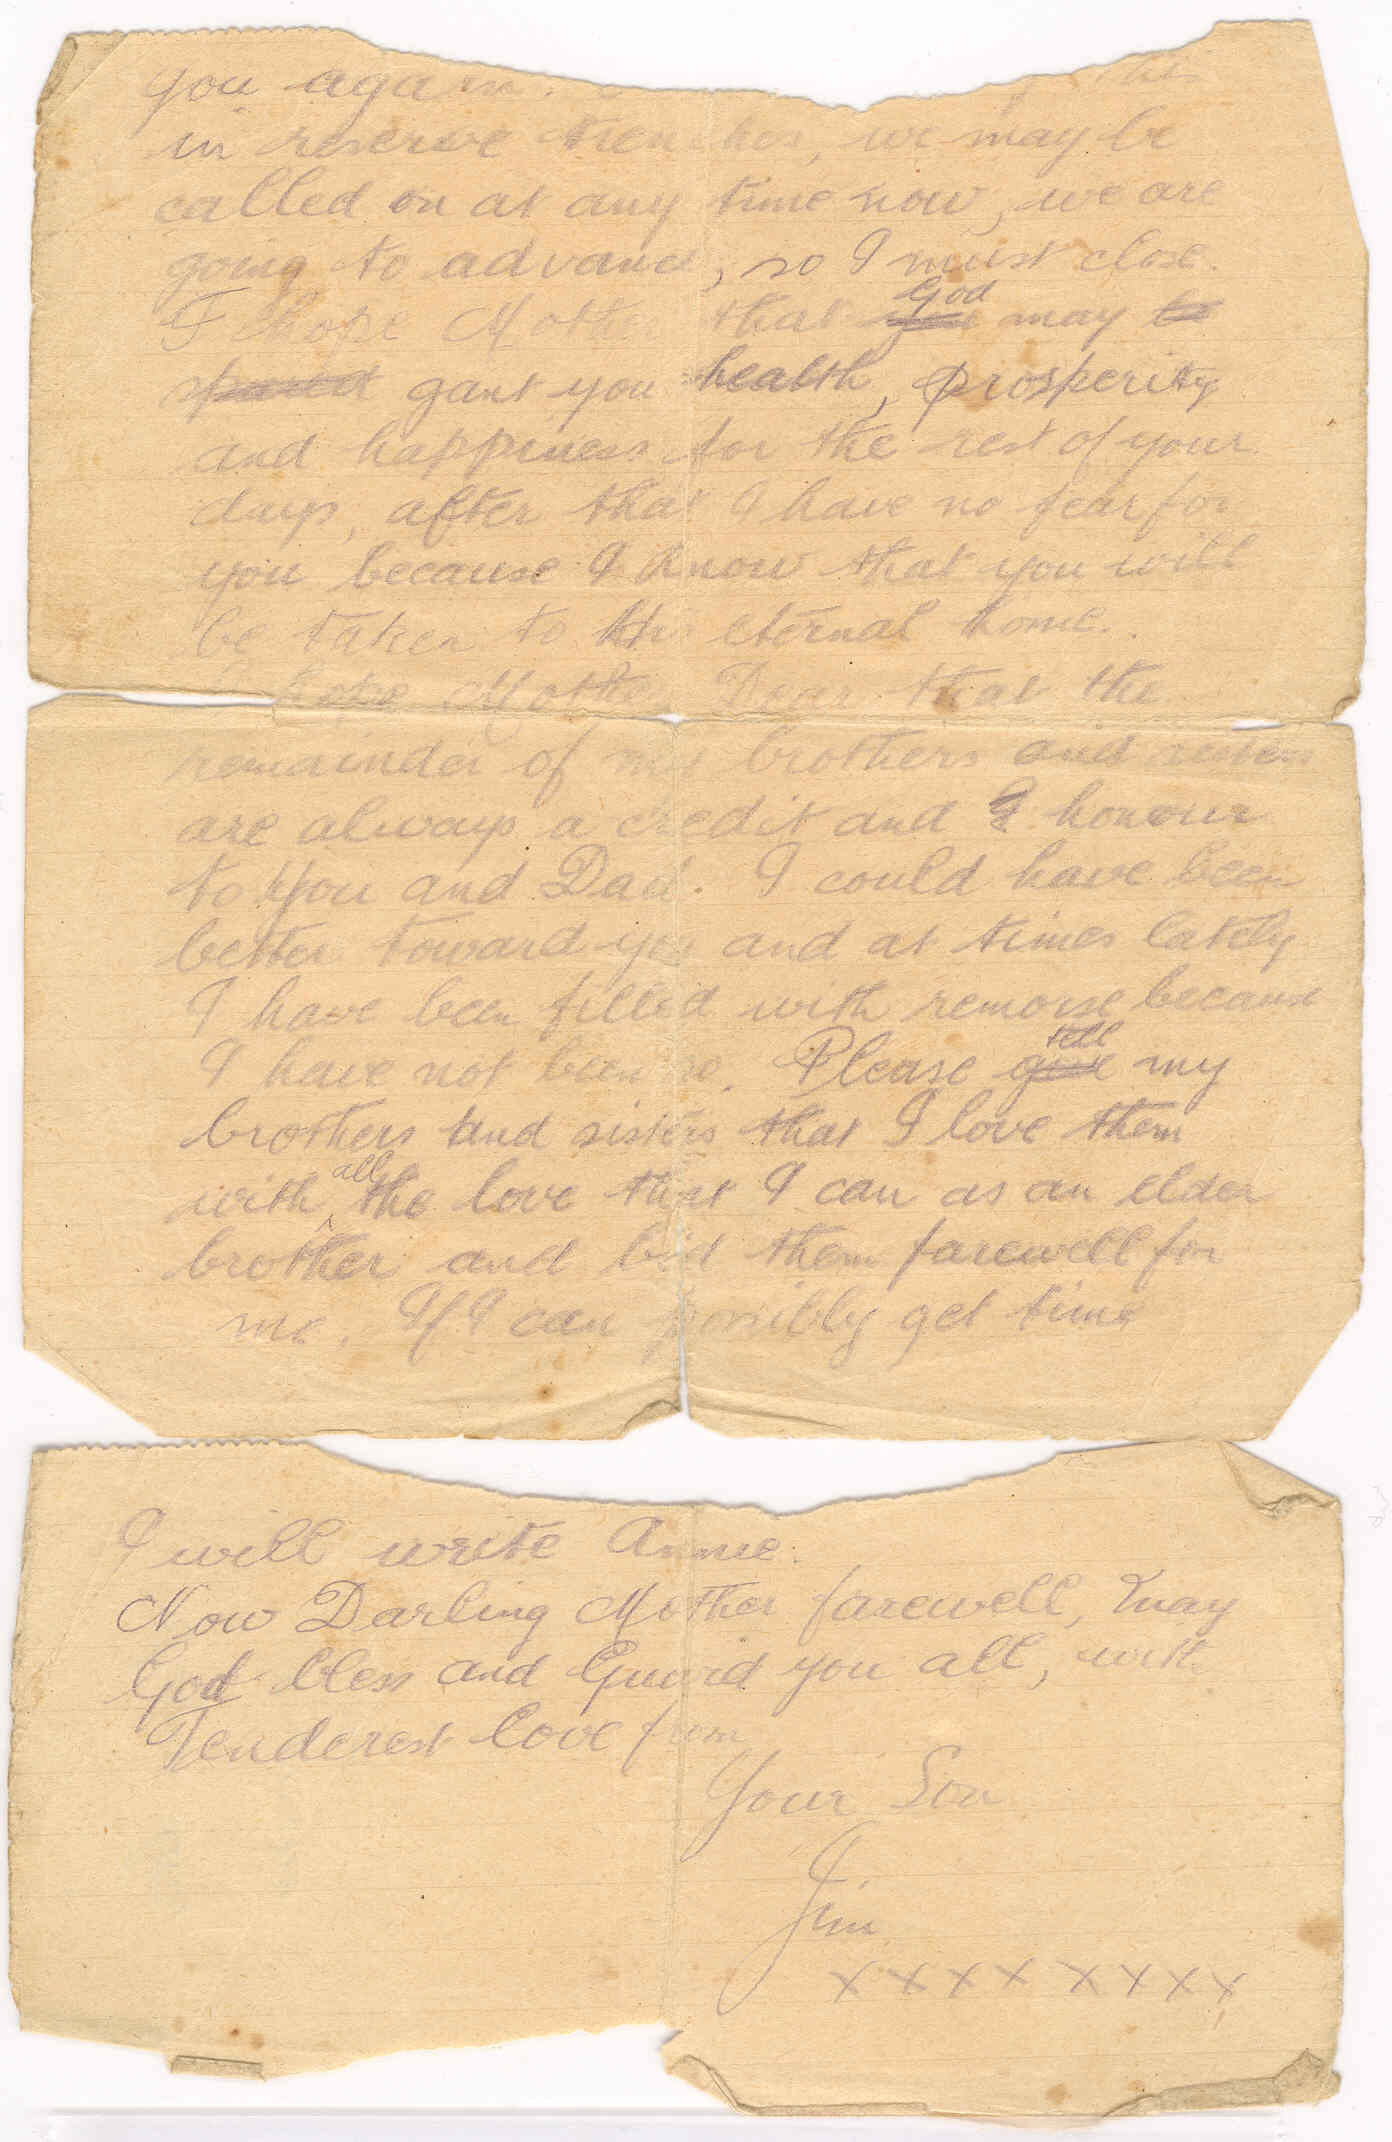 you again. this
in reserve trenches, we may be
called on at any time now, we are
going to advance, so I must close.
I hope Mother that you God may be
spared gant you health, prosperity
and happiness for the rest of your
days, after that I have no fear for
you because I know that you will
be taken to His eternal home.
I hope Mother Dear that the
remainder of my brothers and sisters
are always a credit and honour
to you and Dad. I could have been
better toward you and at times lately
I have been filled with remorse because
I have not been so. Please give tell my
brothers and sisters that I love them
with all the love that I can as an elder
brother and bid them farewell for
me. If I can possibly get time
I will write Annie.
Now Darling Mother farewell, may
God bless and Guard you all, with
Tenderest love from
Your Son
Jim
x x x x x x x x